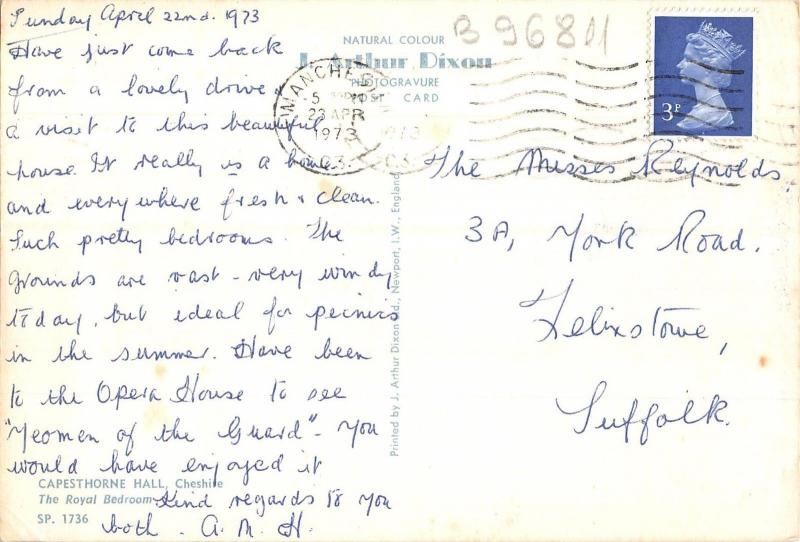 Sunday April 22nd. 1973
Have just come back
from a lovely drive &
a visit to this beautiful
house. It really is a home
and everywhere fresh & clean.
Such pretty bedrooms. The
grounds are vast - very windy
today, but ideal for picnics
in the summer. Have been
to the Opera House to see
"Yeomen of the Guard" - You
would have enjoyed it
Kind regards to you
both - A. M. H.
CAPESTHORNE HALL, Cheshire
The Royal Bedroom
SP. 1736
NATURAL COLOUR
J. Arthur Dixon
PHOTOGRAVURE
POST CARD
Printed by J. Arthur Dixon Ltd., Newport, I.W., England
B 96811
MANCHESTER
23 APR
1973
3P
The Misses Reynolds,
3A, York Road.
Felixstowe,
Suffolk.